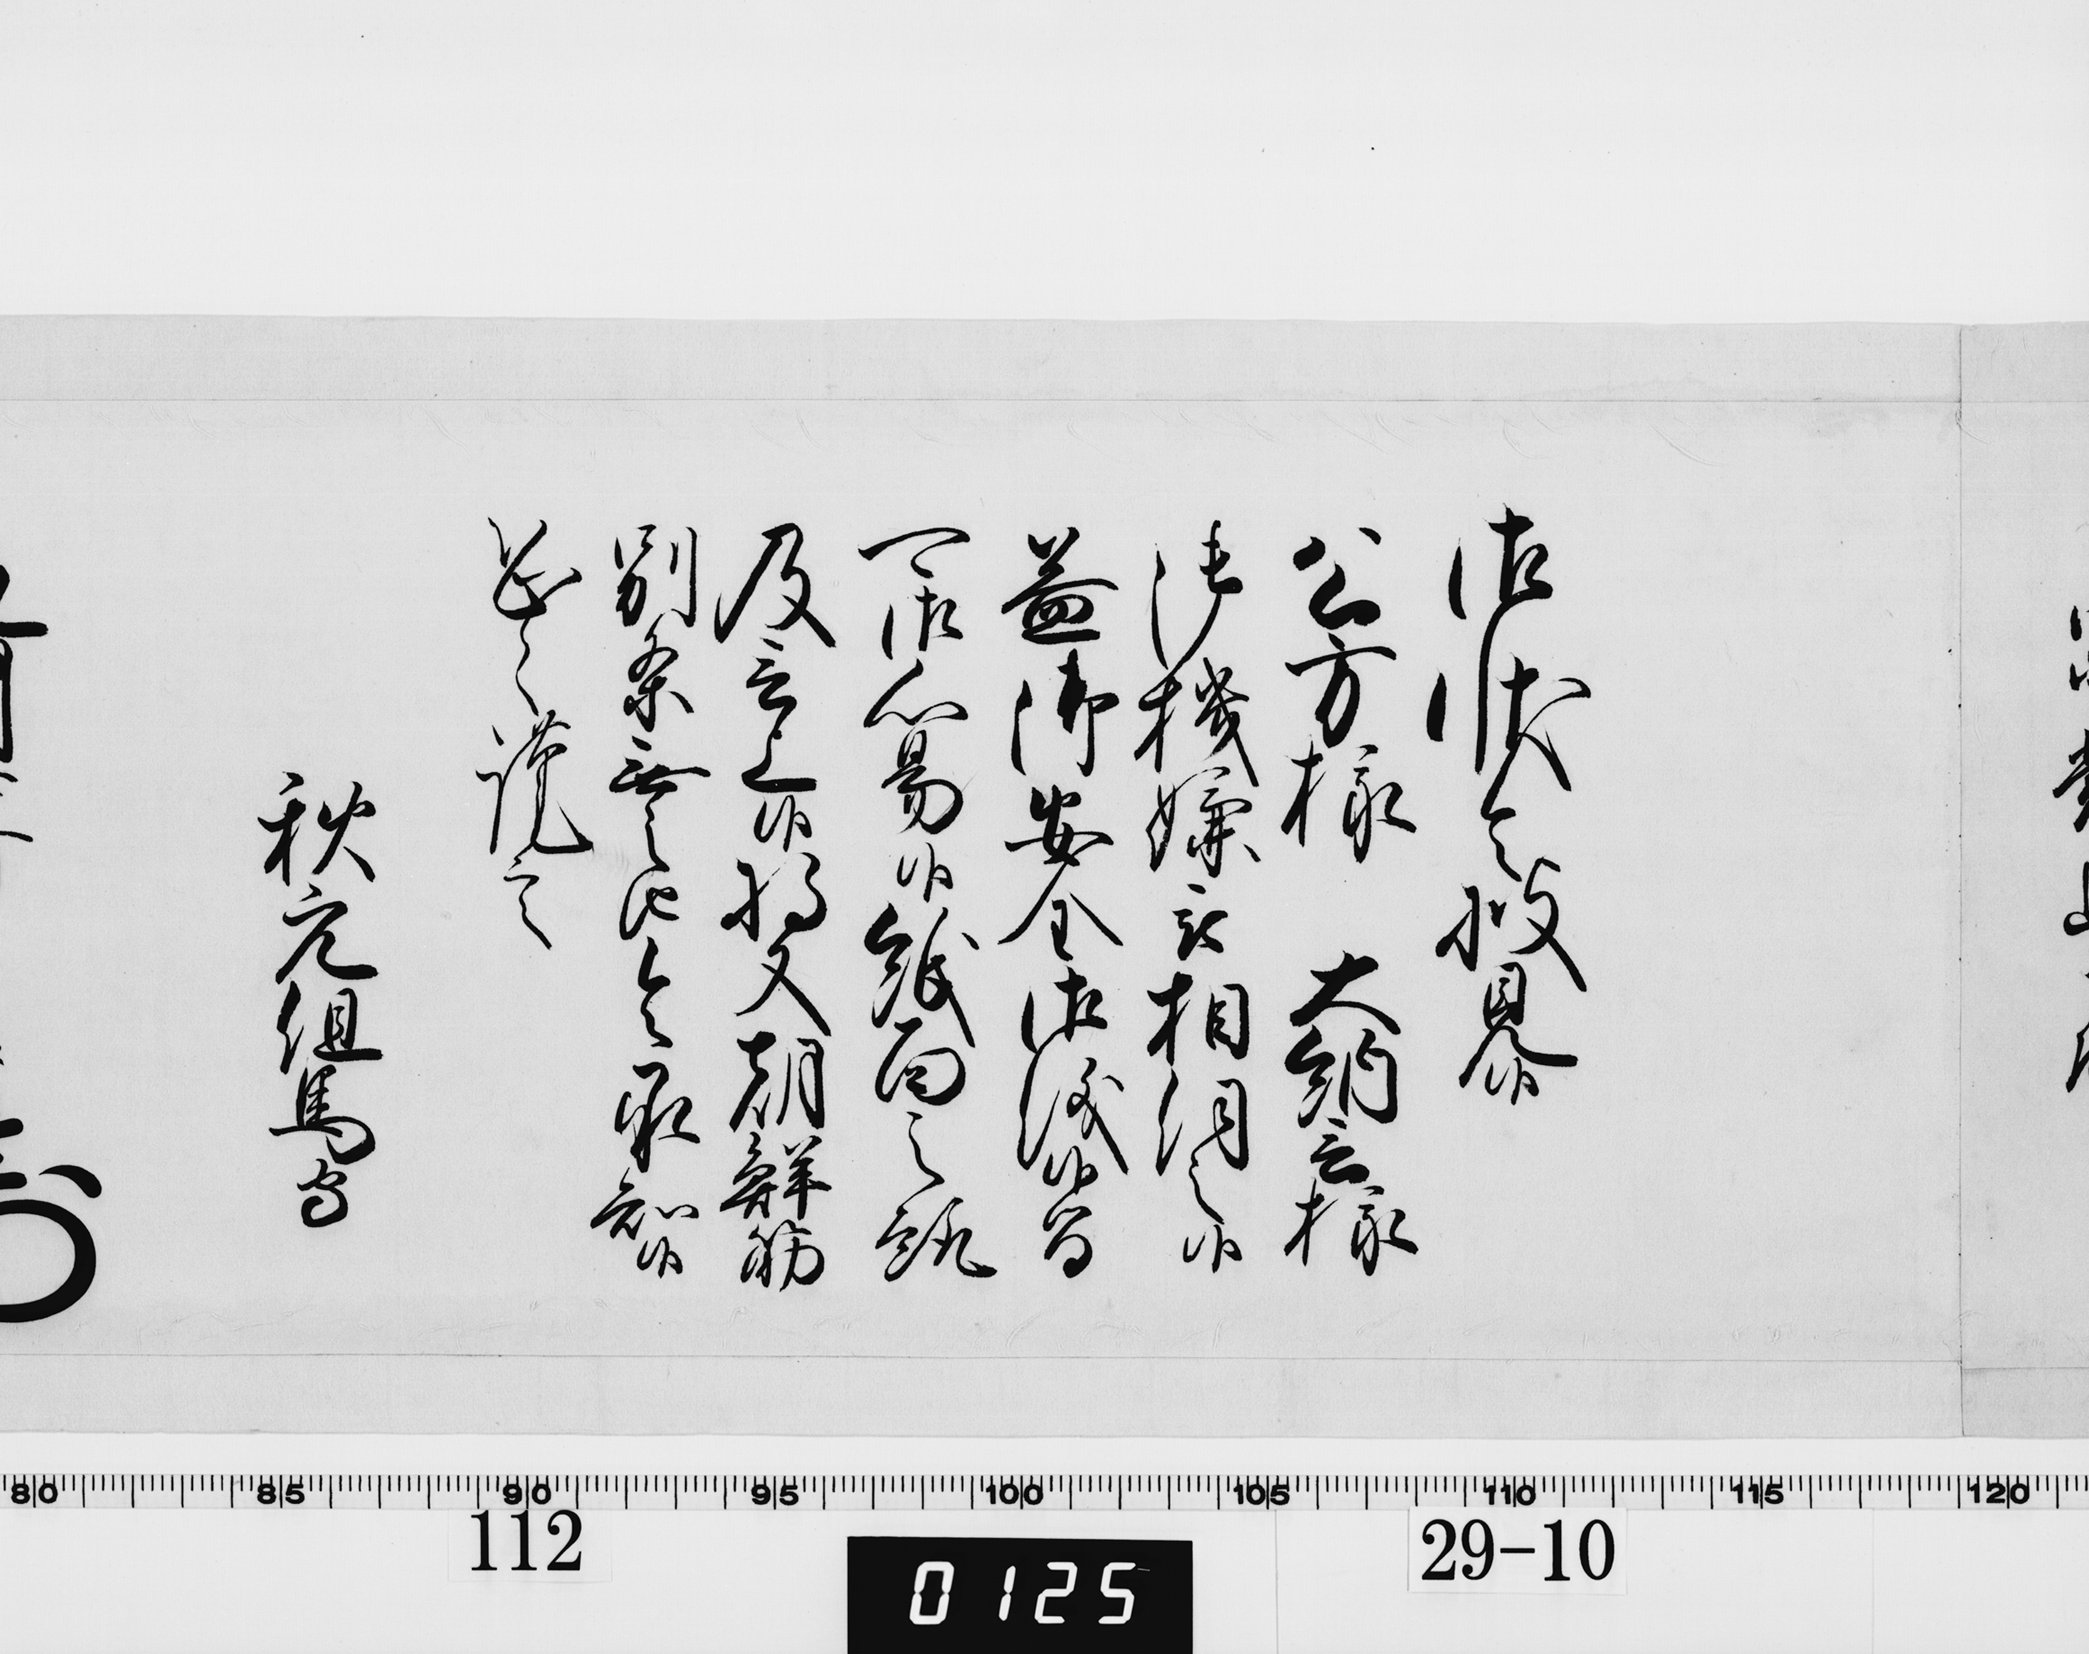 御状令披見候
公方様 大納言様
御機嫌被相伺之候
益御安全御儀候間
可御心易候紙面之趣
及言上候将又朝鮮筋
別条無之由令承知候
恐々謹言
秋元但馬守
80 85 90 95 100 105 110 115 120
112
0125
29-10